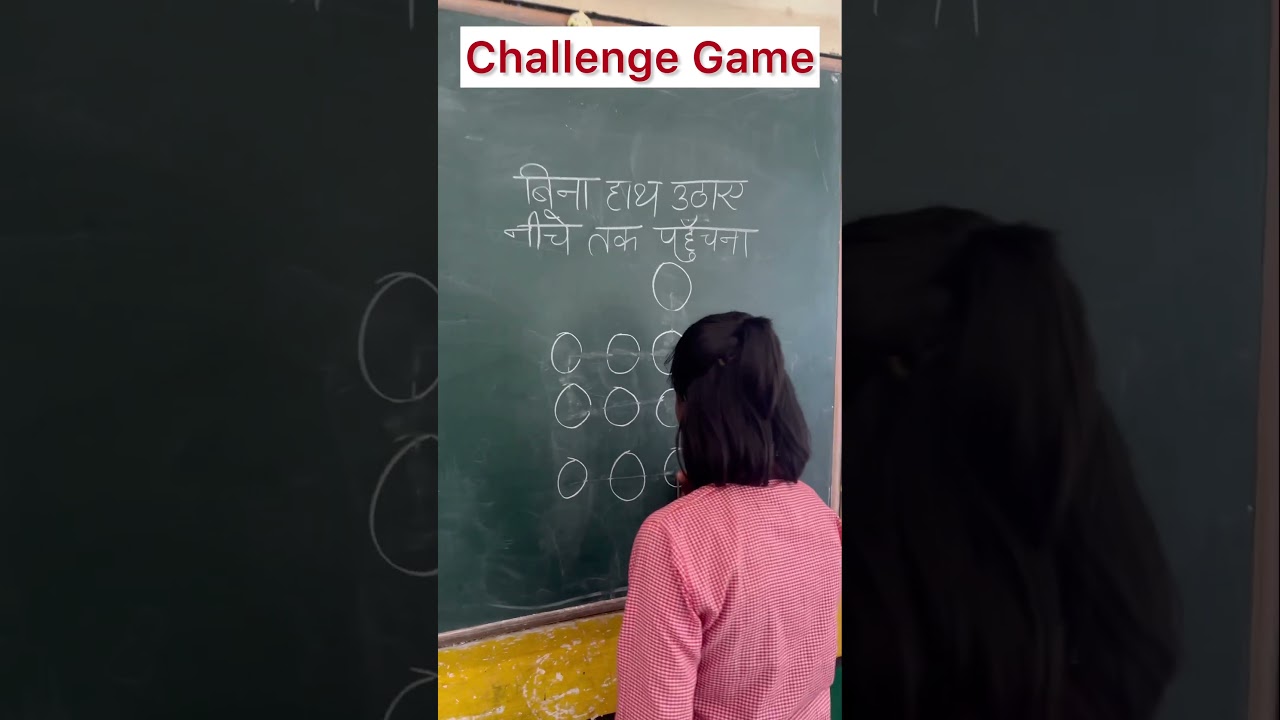 Challenge Game
बिना हाथ उठाए
नीचे तक पहुँचना